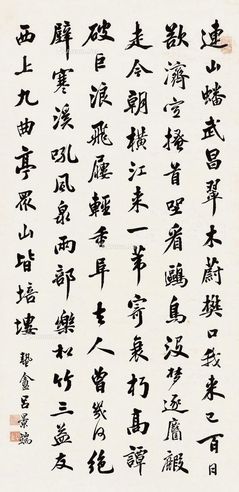 連山蟠武昌翠木蔚樊口我來已百日
欲濟空搔首坐看鷗鳥沒夢逐麏麚
走今朝橫江來一葦寄衰朽高譚
破巨浪飛屨輕重阜去人曾幾何絕
壁寒溪吼風泉兩部樂松竹三益友
西上九曲亭眾山皆培塿
蟄盦呂景端